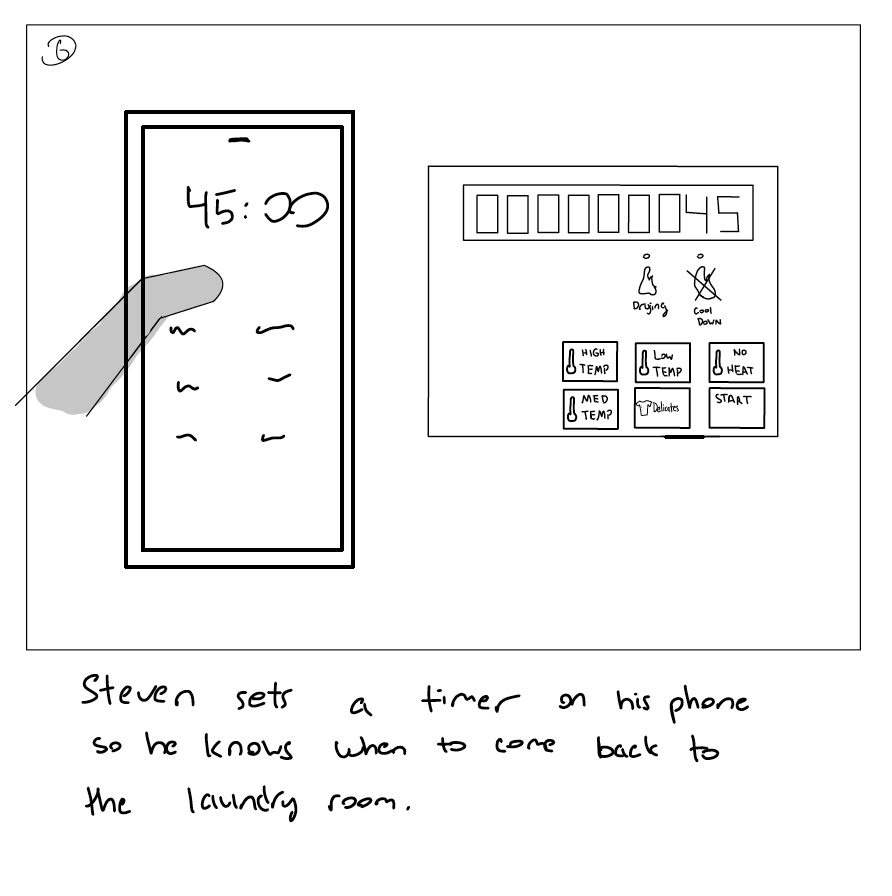 6
45:00
45
Drying
Cool
Down
HIGH
TEMP
Low
TEMP
NO
HEAT
MED
TEMP
Delicates
START
Steven sets a timer on his phone
so he knows when to come back to
the laundry room.